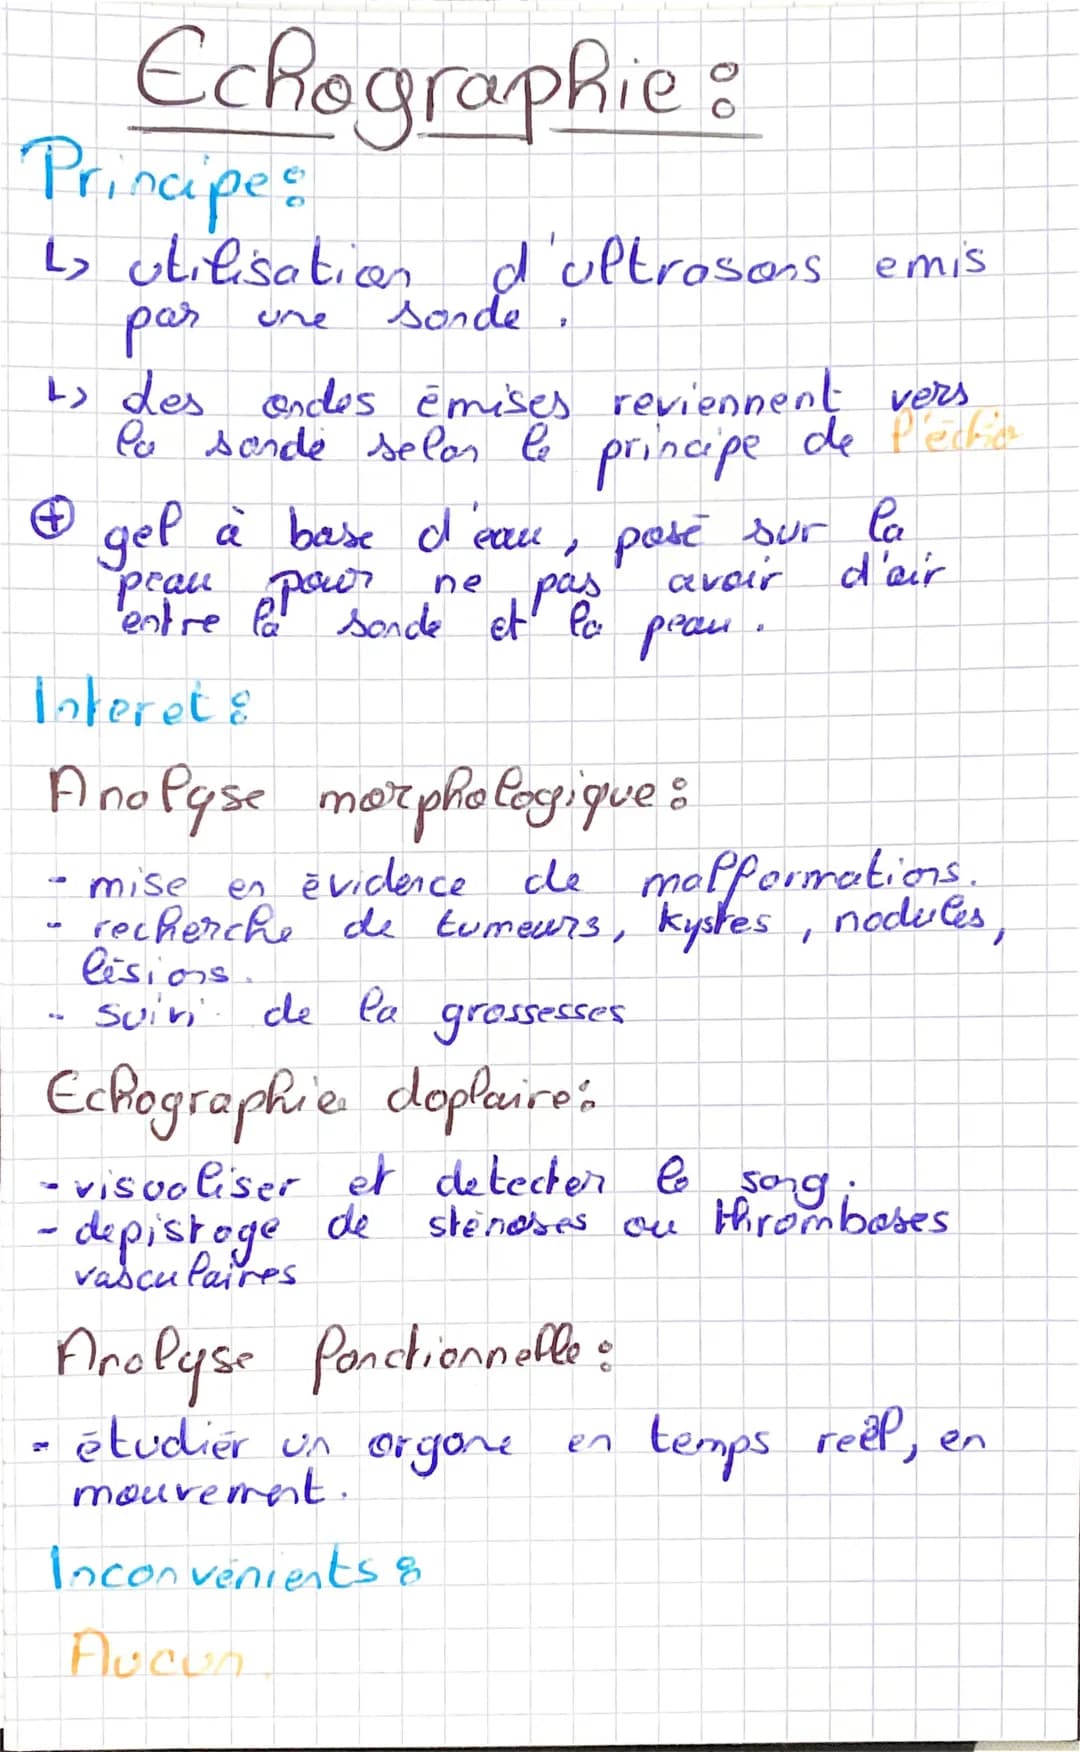 Echographie :
Principe :
↳ utilisation d'ultrasons emis
par une sonde.
↳ des ondes émises reviennent vers
la sonde selon le principe de l'écho
⊕ gel à base d'eau, posé sur la
peau pour ne pas avoir d'air
entre la sonde et la peau.
Interet :
Analyse morphologique :
- mise en évidence de malformations.
- recherche de tumeurs, kystes, nodules,
lésions.
- suivi de la grossesses
Echographie doplaire :
- visualiser et detecter le sang.
- depistage de sténoses ou thromboses
vasculaires
Analyse fonctionnelle :
- étudier un organe en temps reél, en
mouvement.
Inconvénients :
Aucun.